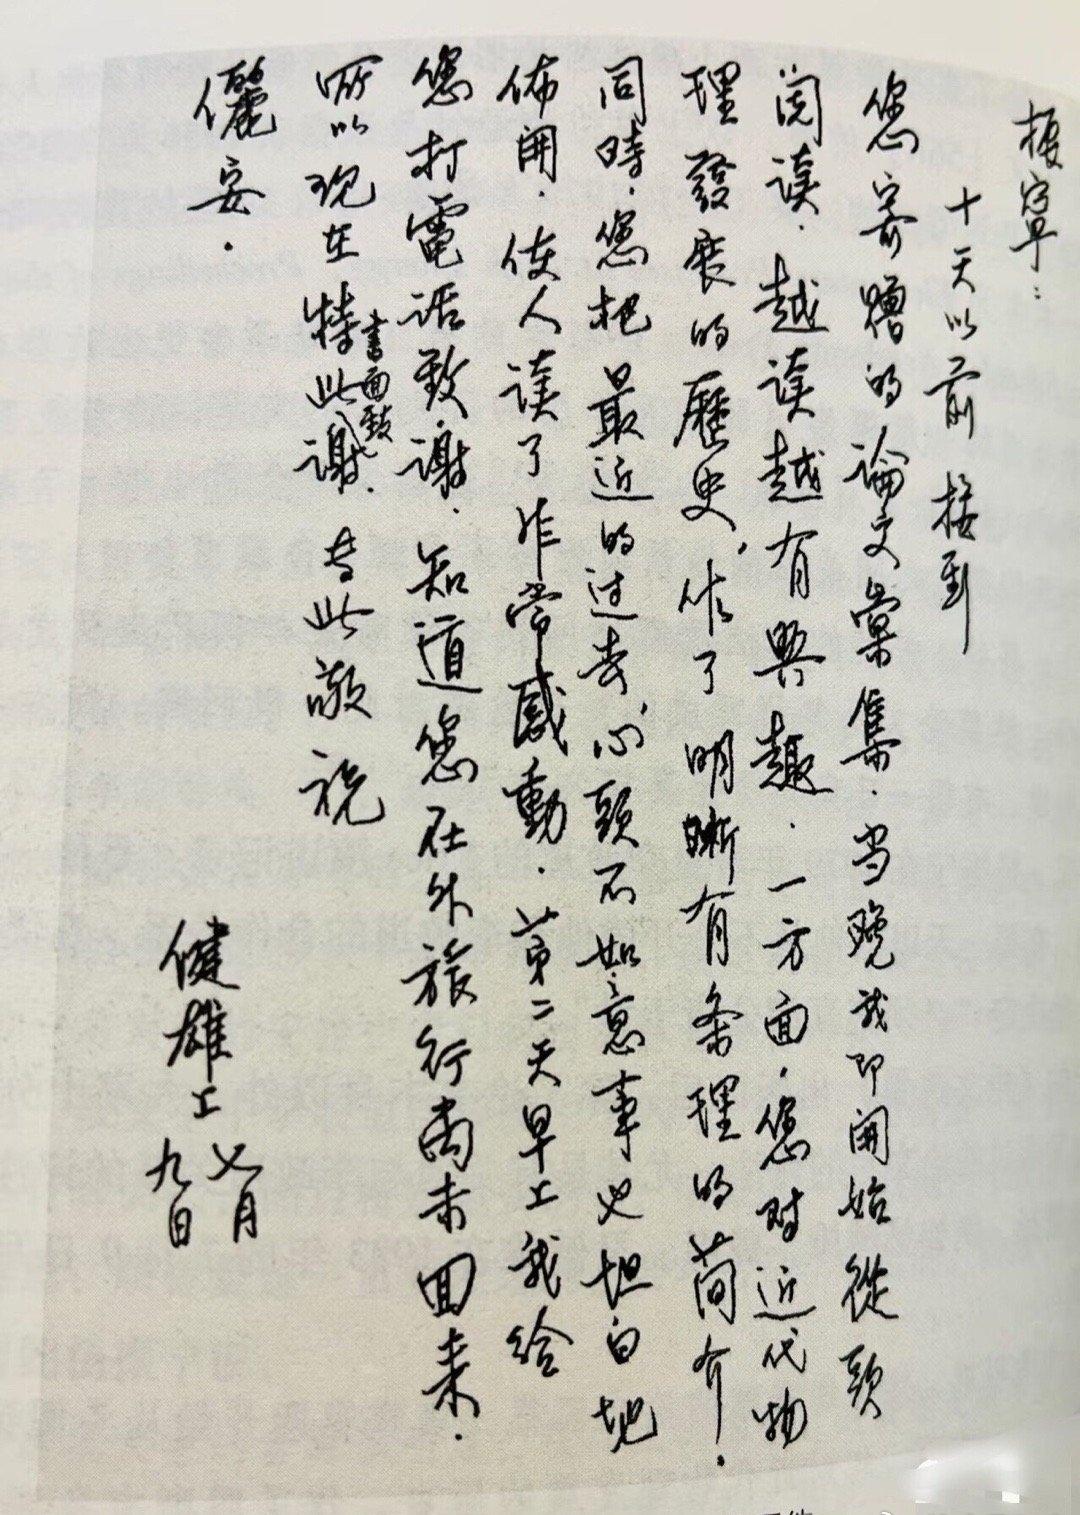 振寧：
十天以前接到
您寄贈的論文彙集．当晚我即開始從頭
閱读．越读越有興趣．一方面，您对近代物
理發展的歷史，作了明晰有条理的简介．
同時．您把最近的过去，心頭不如意事也坦白地
佈開．使人读了非常感動．第二天早上我给
您打電话致谢．知道您在外旅行尚未回来．
所以现在特此書面致谢．专此敬祝
儷安．
健雄上
七月
九日